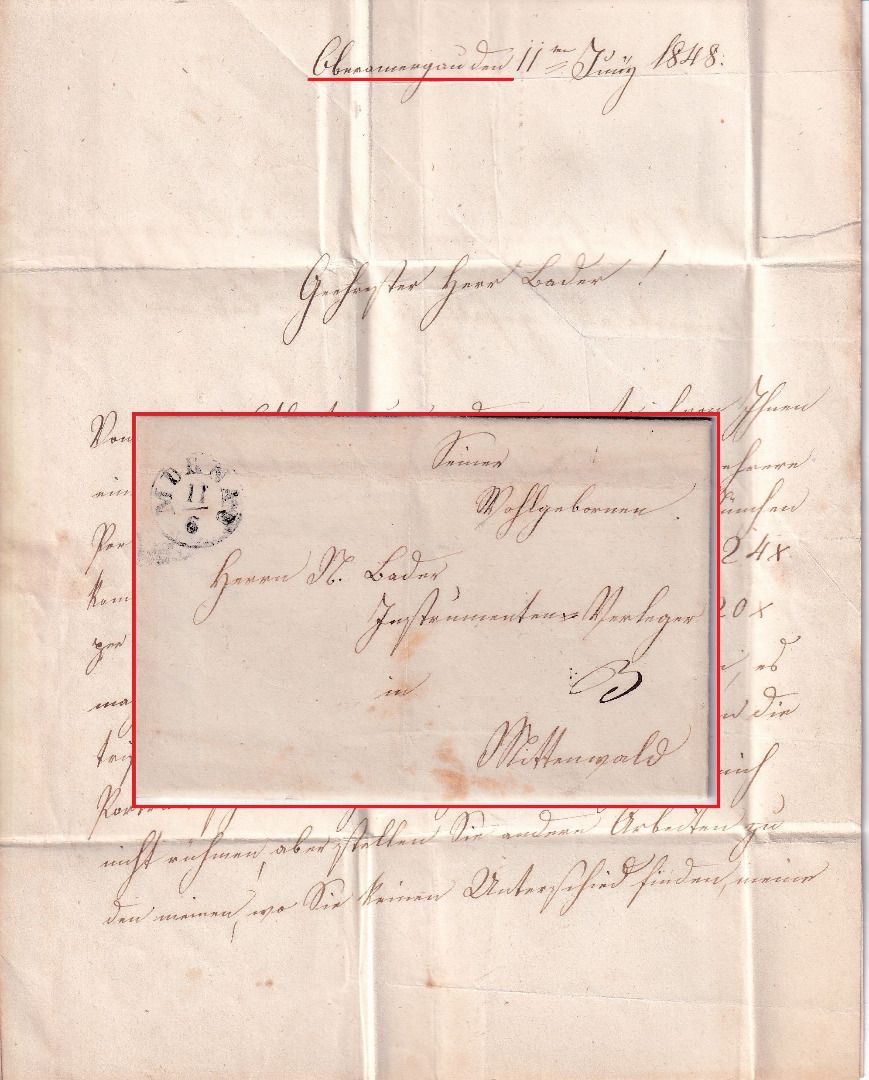 Oberamergau den 11ten Juny 1848.
Geehrtester Herr Bader!
Von Ihnen
ein
Por 24x
kom 20x
per es
ma die
Por
nicht rühmen, aber stellen Sie andere Arbeiten zu
den meinen, wo Sie keinen Unterschied finden, meine
MURNAU
11
6
Seiner
Wohlgebornen
Herrn N. Bader
Instrumenten-Verleger
in 3
Mittenwald